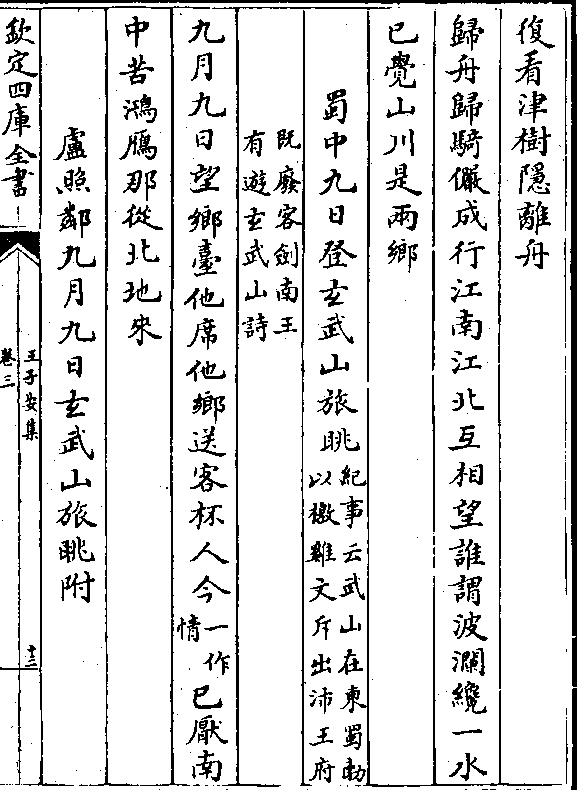 復看津樹隱離舟
歸舟歸騎儼成行江南江北互相望誰謂波瀾纔一水
已覺山川是兩鄉
蜀中九日登玄武山旅眺紀事云武山在東蜀勃
以檄雞文斥出沛王府
既廢客劍南王
有遊玄武山詩
九月九日望鄉臺他席他鄉送客杯人今一作
情已厭南
中苦鴻鴈那從北地來
盧照鄰九月九日玄武山旅眺附
欽定四庫全書
王子安集
卷三
十三